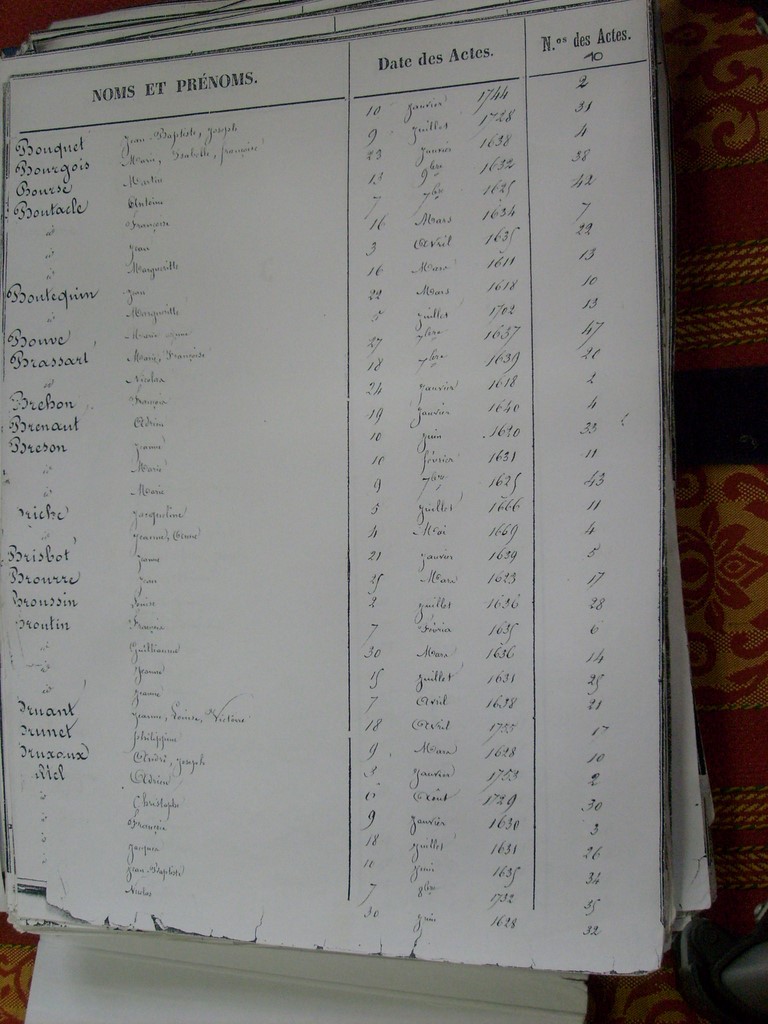 NOMS ET PRÉNOMS. Date des Actes. N.os des Actes.
10
Bouquet Jean-Baptiste, Joseph 10 Janvier 1744 2
Bourgois Marie, Isabelle, françoise 9 Juillet 1728 31
Bourse Martin 23 Janvier 1638 4
Boutacle Antoine 13 9bre 1632 38
id Françoise 7 7bre 1625 42
id Jean 16 Mars 1634 7
id Marguerite 3 Avril 1635 22
Boutequin Jean 16 Mars 1611 13
id Marguerite 22 Mars 1618 10
Bouve Marie Anne 5 Juillet 1702 13
Brassart Marie, Françoise 27 7bre 1637 47
id Nicolas 18 7bre 1639 20
Brehon François 24 Janvier 1618 2
Brenaut Adrien 19 Janvier 1640 4
Breson Jeanne 10 Juin 1620 33
id Marie 10 février 1631 11
id Marie 9 7bre 1625 43
riche Jacqueline 5 Juillet 1666 11
Jeanne, Anne 4 Mai 1669 4
Brisbot Jeanne 21 Janvier 1639 5
Brourre Jean 25 Mars 1623 17
Broussin Louise 2 Juillet 1636 28
Broutin François 7 Février 1635 6
id Guillianne 30 Mars 1636 14
id Jeanne 15 Juillet 1631 25
id Jeanne 7 Avril 1638 21
Bruant Jeanne, Louise, Victoire 18 Avril 1755 17
Brunet Philippine 9 Mars 1628 10
Bruxaux André, Joseph Janvier 1753 2
Adrien 6 Août 1729 30
id Christophe 9 Janvier 1630 3
id François 18 Juillet 1631 26
id Jacques 10 Juin 1635 34
id Jean-Baptiste 7 8bre 1732 35
Nicolas 30 Juin 1628 32